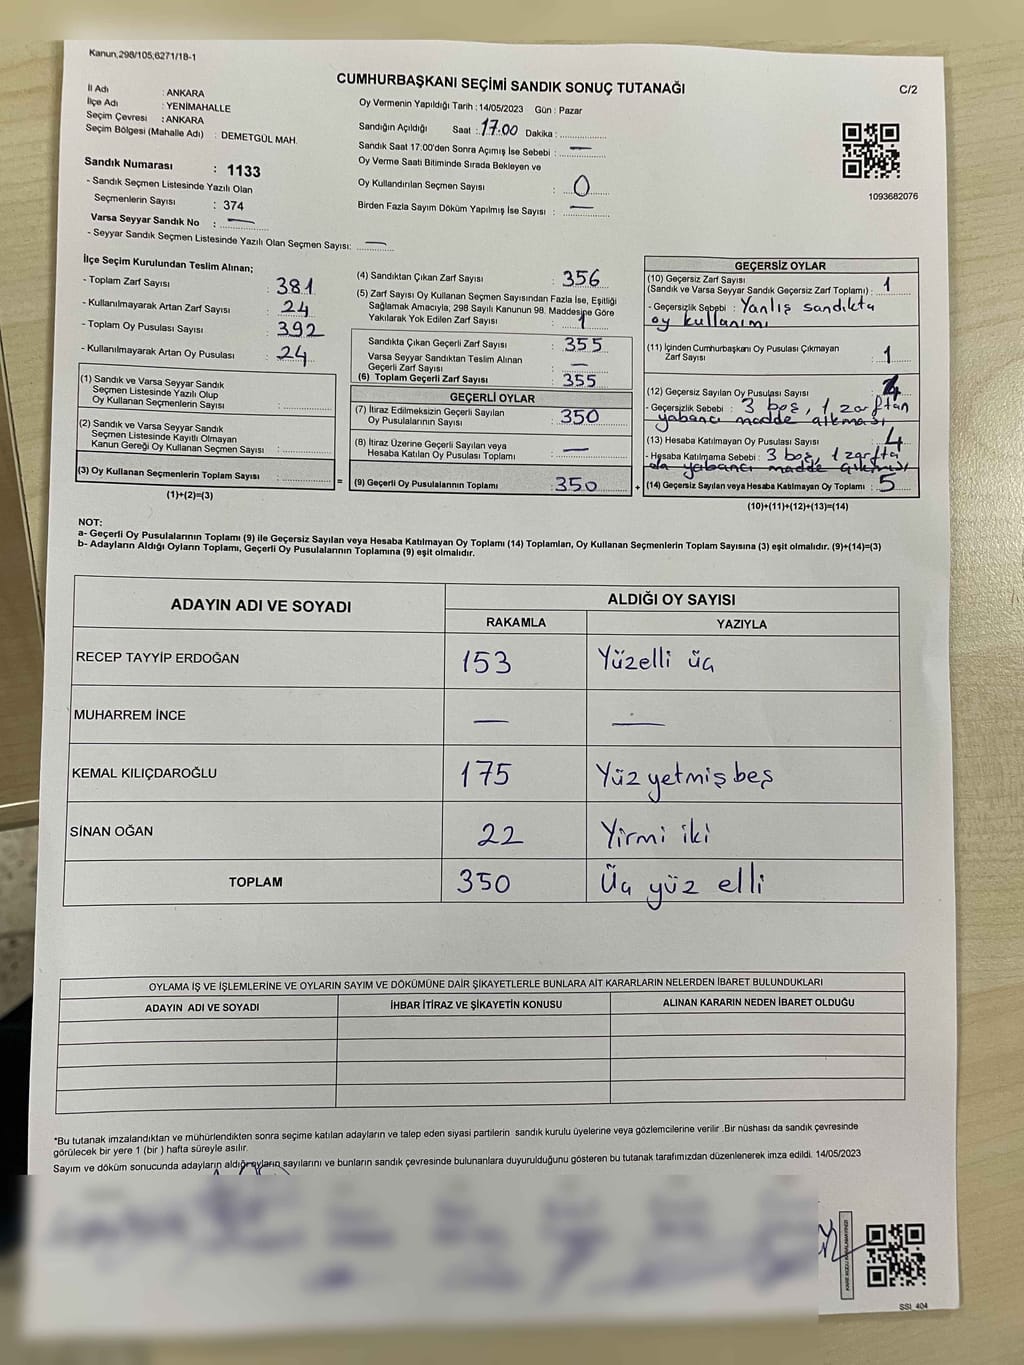 Kanun,298/105,6271/18-1
CUMHURBAŞKANI SEÇİMİ SANDIK SONUÇ TUTANAĞI
C/2
İl Adı : ANKARA
İlçe Adı : YENİMAHALLE
Seçim Çevresi : ANKARA
Seçim Bölgesi (Mahalle Adı) : DEMETGÜL MAH.
Sandık Numarası : 1133
- Sandık Seçmen Listesinde Yazılı Olan
Seçmenlerin Sayısı : 374
Varsa Seyyar Sandık No : —
- Seyyar Sandık Seçmen Listesinde Yazılı Olan Seçmen Sayısı: —
Oy Vermenin Yapıldığı Tarih : 14/05/2023 Gün : Pazar
Sandığın Açıldığı Saat : 17:00 Dakika :
Sandık Saat 17:00'den Sonra Açımış İse Sebebi : —
Oy Verme Saati Bitiminde Sırada Bekleyen ve
Oy Kullandırılan Seçmen Sayısı : 0
Birden Fazla Sayım Döküm Yapılmış İse Sayısı : —
1093682076
İlçe Seçim Kurulundan Teslim Alınan;
- Toplam Zarf Sayısı : 381
- Kullanılmayarak Artan Zarf Sayısı : 24
- Toplam Oy Pusulası Sayısı : 392
- Kullanılmayarak Artan Oy Pusulası : 24
(1) Sandık ve Varsa Seyyar Sandık
Seçmen Listesinde Yazılı Olup
Oy Kullanan Seçmenlerin Sayısı :
(2) Sandık ve Varsa Seyyar Sandık
Seçmen Listesinde Kayıtlı Olmayan
Kanun Gereği Oy Kullanan Seçmen Sayısı :
(3) Oy Kullanan Seçmenlerin Toplam Sayısı :
(1)+(2)=(3)
=
(4) Sandıktan Çıkan Zarf Sayısı : 356
(5) Zarf Sayısı Oy Kullanan Seçmen Sayısından Fazla İse, Eşitliği
Sağlamak Amacıyla, 298 Sayılı Kanunun 98. Maddesine Göre
Yakılarak Yok Edilen Zarf Sayısı : 1
Sandıkta Çıkan Geçerli Zarf Sayısı : 355
Varsa Seyyar Sandıktan Teslim Alınan
Geçerli Zarf Sayısı : —
(6) Toplam Geçerli Zarf Sayısı : 355
GEÇERLİ OYLAR
(7) İtiraz Edilmeksizin Geçerli Sayılan
Oy Pusulalarının Sayısı : 350
(8) İtiraz Üzerine Geçerli Sayılan veya
Hesaba Katılan Oy Pusulası Toplamı : —
(9) Geçerli Oy Pusulalarının Toplamı : 350
+
GEÇERSİZ OYLAR
(10) Geçersiz Zarf Sayısı
(Sandık ve Varsa Seyyar Sandık Geçersiz Zarf Toplamı) : 1
- Geçersizlik Sebebi : Yanlış sandıkta
oy kullanımı
(11) İçinden Cumhurbaşkanı Oy Pusulası Çıkmayan
Zarf Sayısı : 1
(12) Geçersiz Sayılan Oy Pusulası Sayısı :
- Geçersizlik Sebebi : 3 boş, 1 zarftan
yabancı madde çıkması
(13) Hesaba Katılmayan Oy Pusulası Sayısı : 4
- Hesaba Katılmama Sebebi : 3 boş, 1 zarfta
da yabancı madde çıkması
(14) Geçersiz Sayılan veya Hesaba Katılmayan Oy Toplamı : 5
(10)+(11)+(12)+(13)=(14)
NOT:
a- Geçerli Oy Pusulalarının Toplamı (9) ile Geçersiz Sayılan veya Hesaba Katılmayan Oy Toplamı (14) Toplamları, Oy Kullanan Seçmenlerin Toplam Sayısına (3) eşit olmalıdır. (9)+(14)=(3)
b- Adayların Aldığı Oyların Toplamı, Geçerli Oy Pusulalarının Toplamına (9) eşit olmalıdır.
ADAYIN ADI VE SOYADI
ALDIĞI OY SAYISI
RAKAMLA YAZIYLA
RECEP TAYYİP ERDOĞAN 153 Yüzelli üç
MUHARREM İNCE — —
KEMAL KILIÇDAROĞLU 175 Yüz yetmiş beş
SİNAN OĞAN 22 Yirmi iki
TOPLAM 350 Üç yüz elli
OYLAMA İŞ VE İŞLEMLERİNE VE OYLARIN SAYIM VE DÖKÜMÜNE DAİR ŞİKAYETLERLE BUNLARA AİT KARARLARIN NELERDEN İBARET BULUNDUKLARI
ADAYIN ADI VE SOYADI İHBAR İTİRAZ VE ŞİKAYETİN KONUSU ALINAN KARARIN NEDEN İBARET OLDUĞU
*Bu tutanak imzalandıktan ve mühürlendikten sonra seçime katılan adayların ve talep eden siyasi partilerin sandık kurulu üyelerine veya gözlemcilerine verilir .Bir nüshası da sandık çevresinde
görülecek bir yere 1 (bir ) hafta süreyle asılır.
Sayım ve döküm sonucunda adayların aldığı oyların sayılarını ve bunların sandık çevresinde bulunanlara duyurulduğunu gösteren bu tutanak tarafımızdan düzenlenerek imza edildi. 14/05/2023
SSI_404